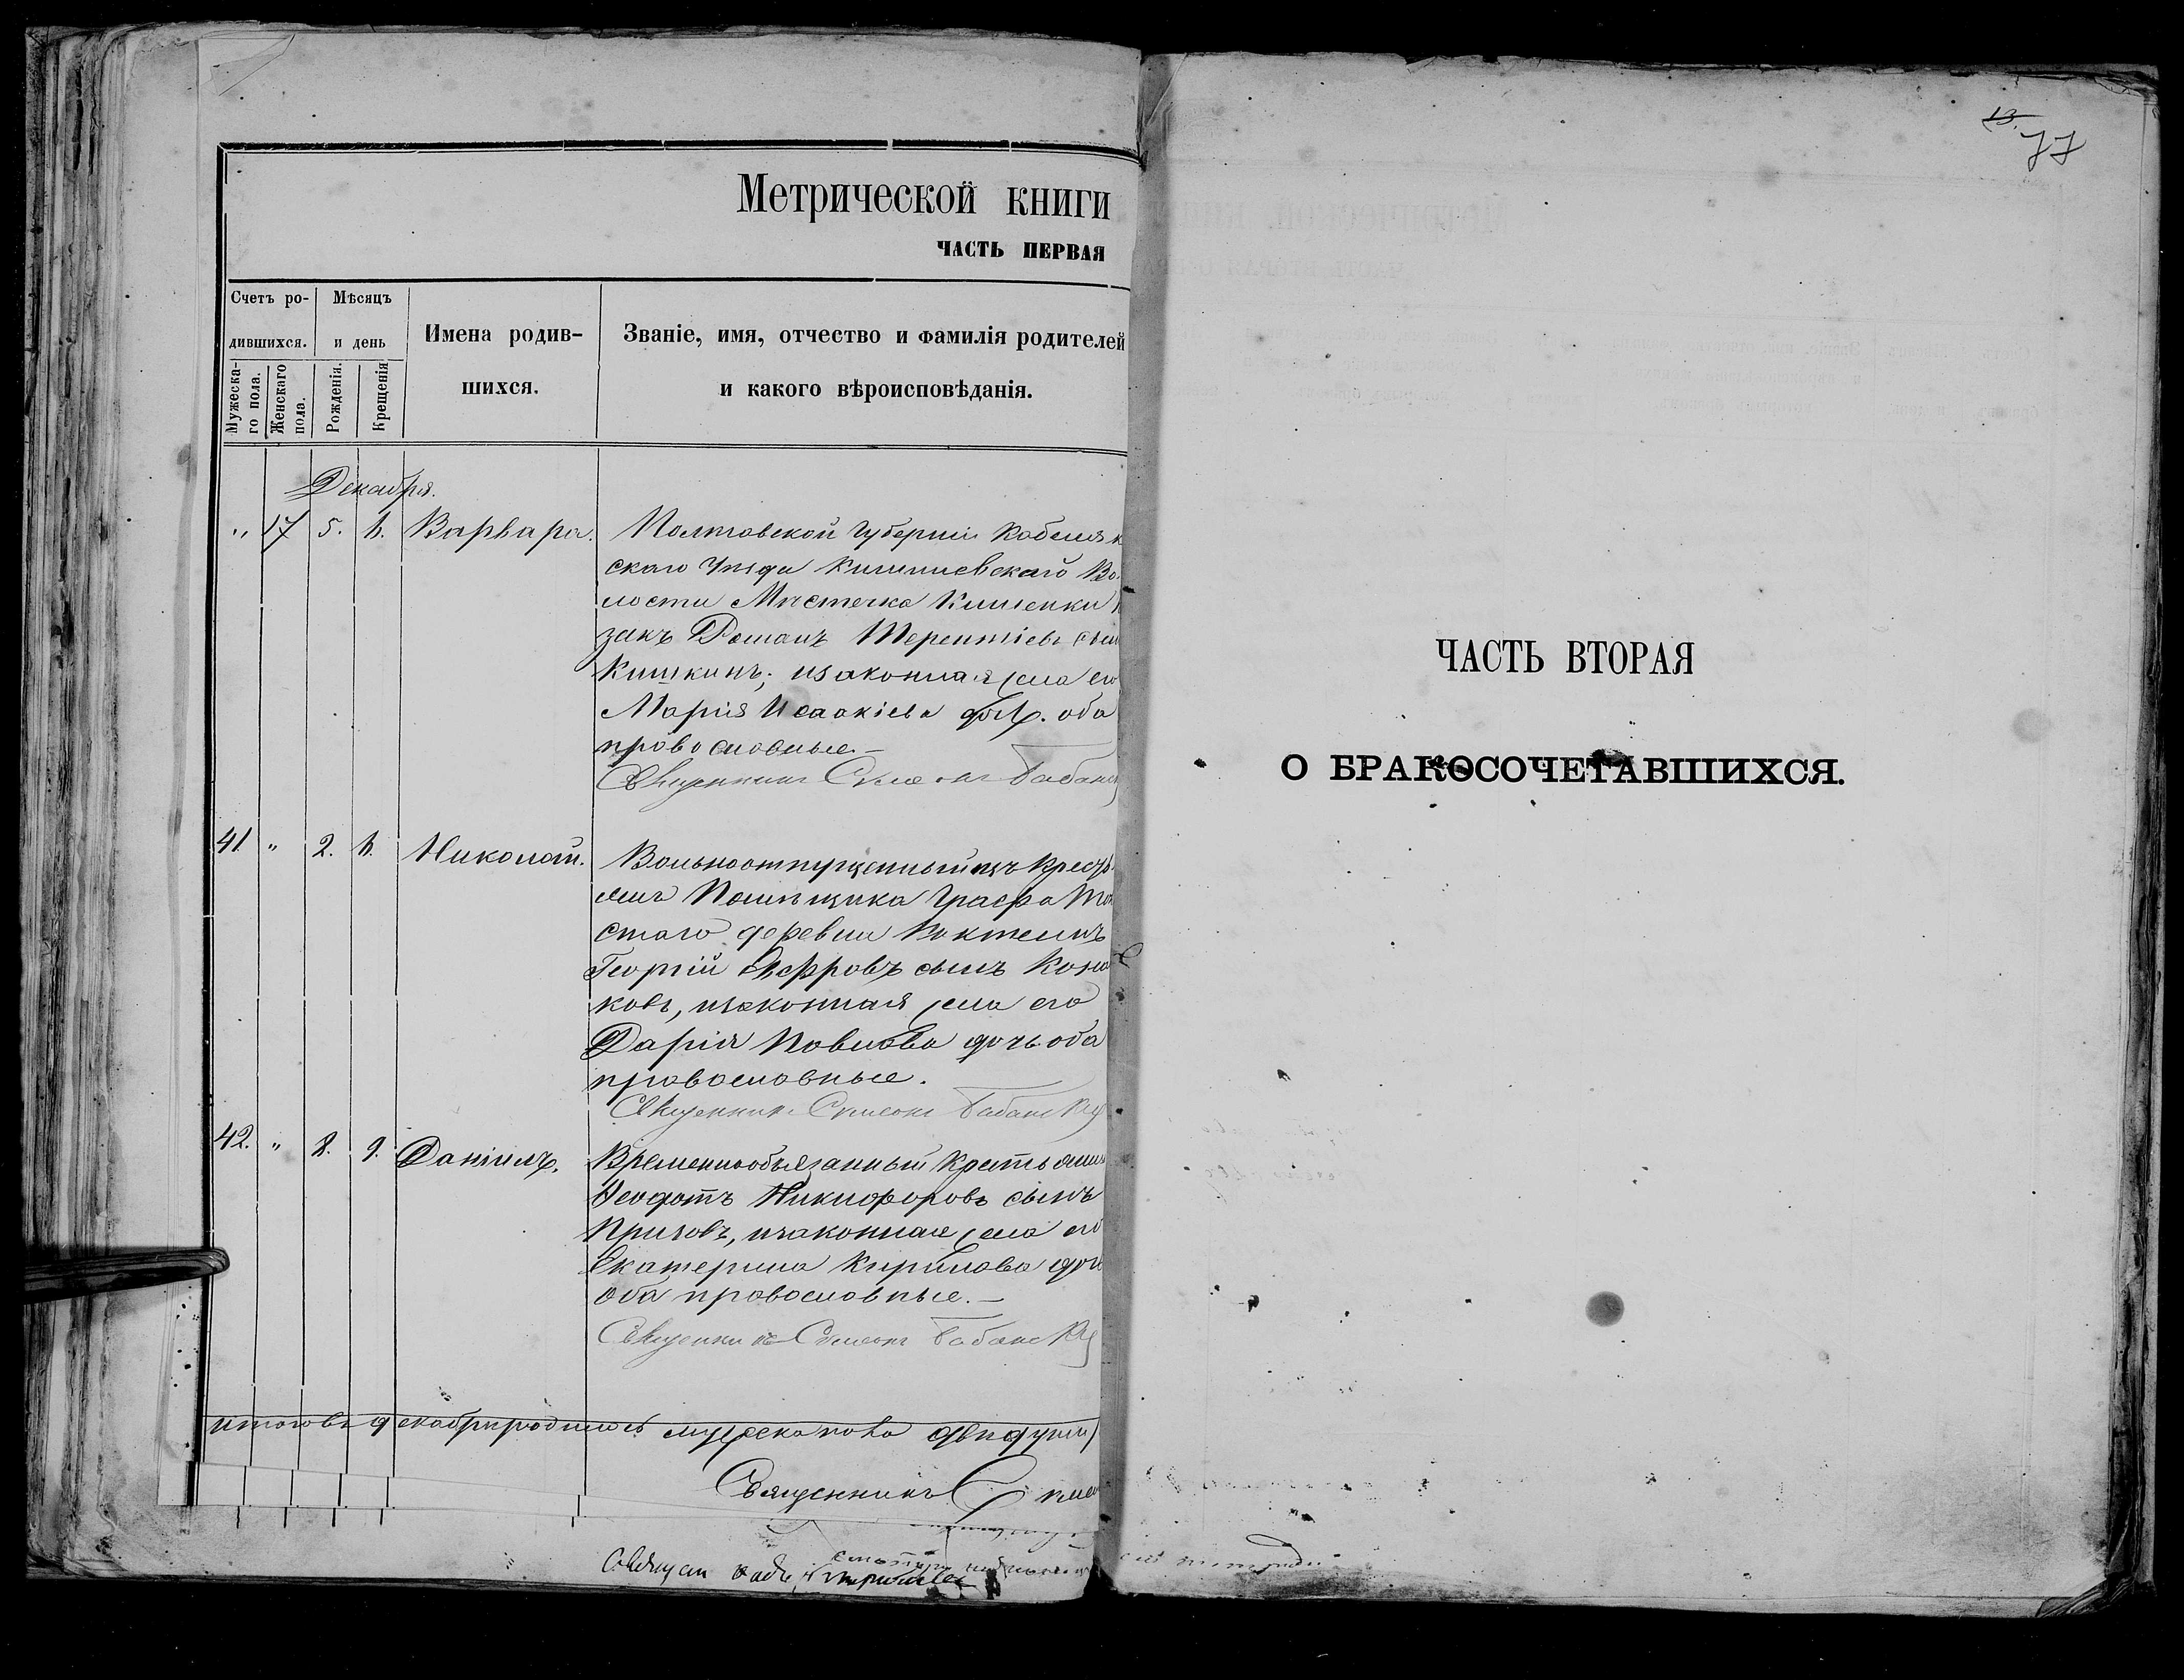 13.
77
Метрической книги
ЧАСТЬ ПЕРВАЯ
Счетъ ро-
дившихся.
Мужеска-
го пола.
Женскаго
пола.
Мѣсяцъ
и день
Рожденія.
Крещенія
Имена родив-
шихся.
Званіе, имя, отчество и фамилія родителей
и какого вѣроисповѣданія.
Декабря.
" 17 5. 6. Варвара.
Полтавской Губерніи Кобеляк
скаго Уѣзда Кишинъевскаго Во
лости Мѣстечка Кишенки
закъ Романъ Терентіевъ сын
Кишкинъ; изаконная жена его
Марія Исаакіева дочь. оба
православные.—
Священникъ Симеонъ Бабанск
41. " 2. 6. Николай.
Вольноотпущенный изъ Крестья
янъ Помѣщика Графа Тол
стаго деревни
Георгій сынъ Кона
ковъ, изаконная жена его
Дарія Павлова дочь оба
православные.
Священникъ Симеонъ Бабанскій
42. " 8. 9. Даніилъ.
Временнообязанный Крестьянин
Феодотъ Никифоровъ сынъ
изаконная жена его
Екатерина Кирилова дочь
Оба православные.—
Священникъ Симеонъ Бабанскій
Итого въ декабрѣ родилось мужеска пола двѣ души
Священникъ Симео
ЧАСТЬ ВТОРАЯ
О БРАКОСОЧЕТАВШИХСЯ.